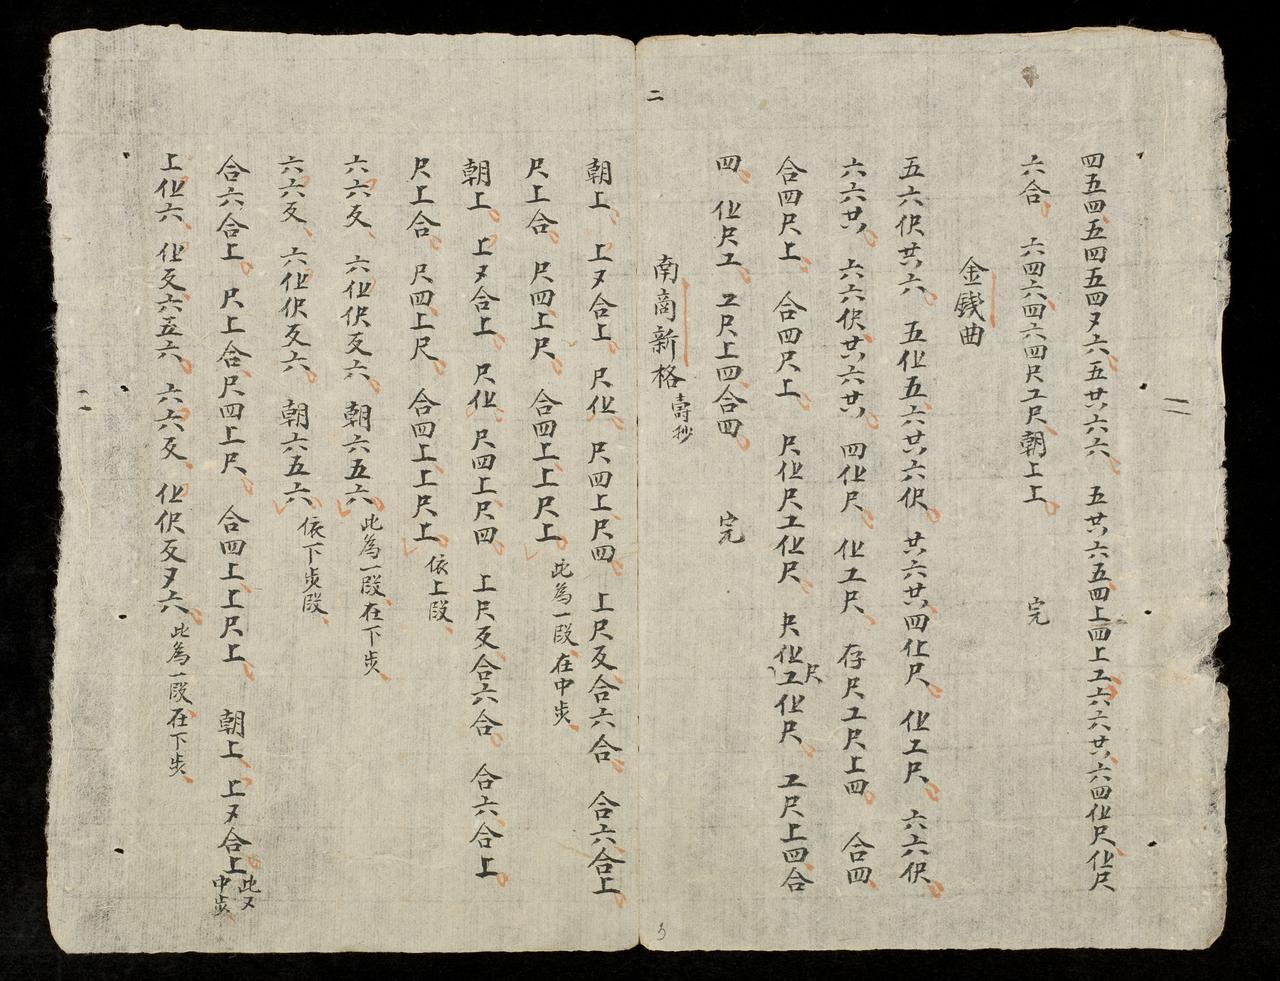 二
四五四五四五四又六五廿六六 五廿六五四上四上工六六廿六四仩尺仩尺
六合 六四六四六四尺工尺朝上上 完
金銭曲
五六伬廿六 五仩五六廿六伬 廿六廿四仩尺 仩工尺 六六伬
六六廿 六六伬廿六廿 四仩尺 仩工尺 存尺工尺上四 合四
合四尺上 合四尺上 尺仩尺工仩尺 仩工仩尺 工尺上四合
尺
四 仩尺工 工尺上四合四 完
南商新格 壽抄
朝上 上又合上 尺仩 尺四上尺四 上尺反合六合 合六合上
尺上合 尺四上尺 合四上上尺上 此為一段在中步
朝上 上又合上 尺仩 尺四上尺四 上尺反合六合 合六合上
尺上合 尺四上尺 合四上上尺上 依上段
六六反 六仩伬反六 朝六五六 此為一段在下步
六六反 六仩伬反六 朝六五六 依下步段
合六合上 尺上合尺四上尺 合四上上尺上 朝上 上又合上 此又中步
上仩六 仩反六五六 六六反 仩伬反又六 此為一段在下步